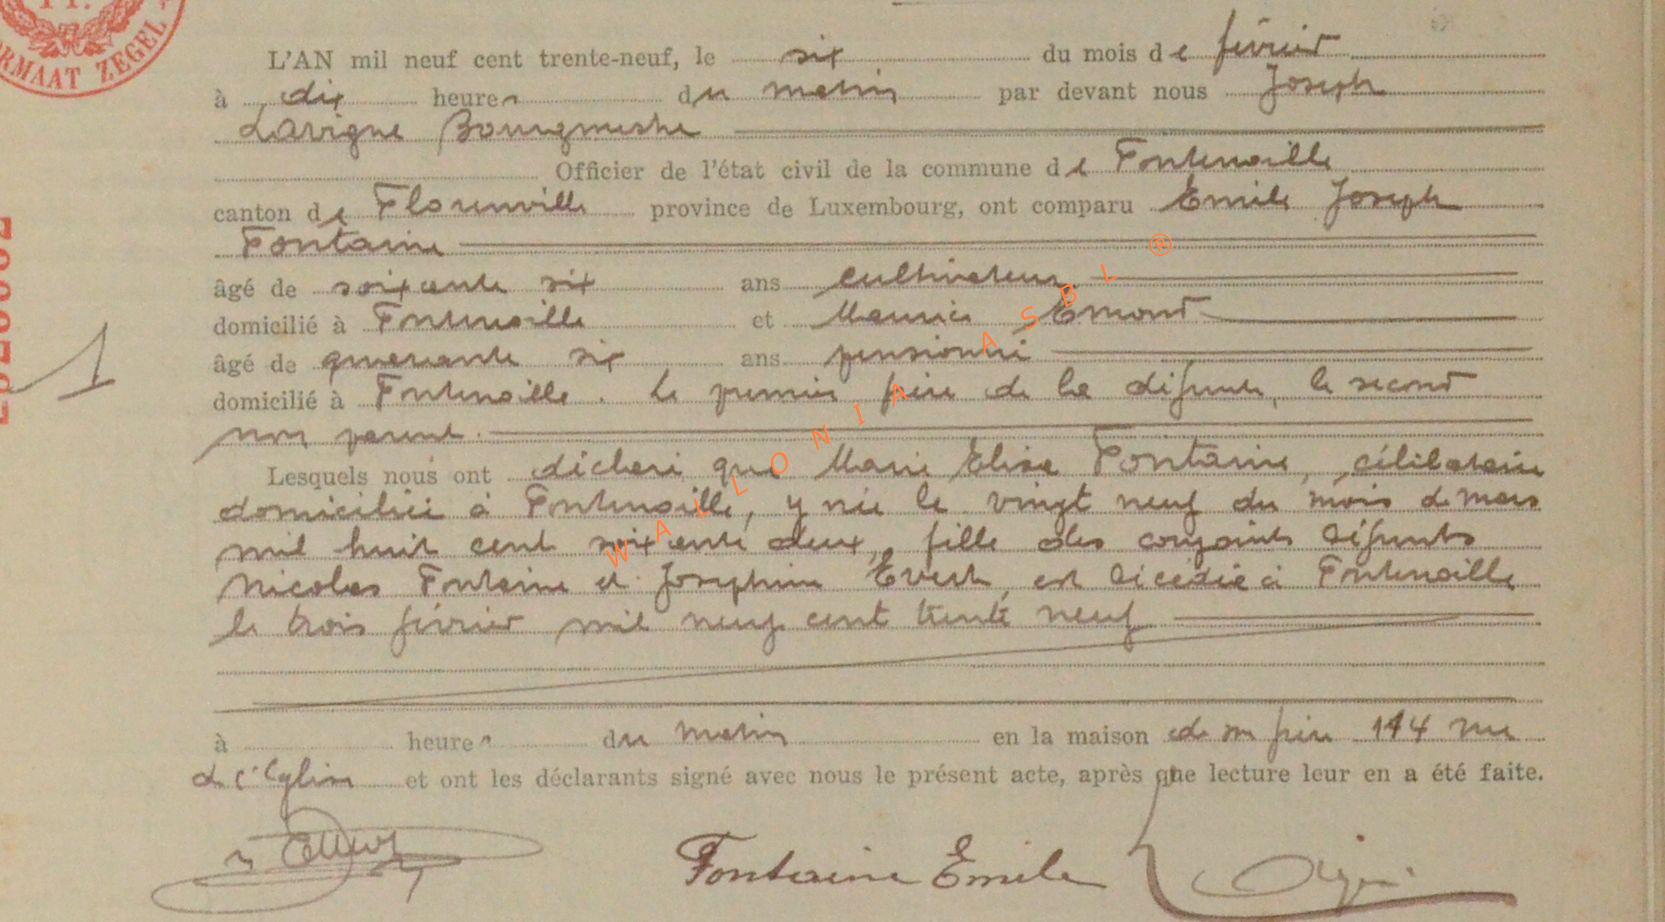 ORMAAT ZEGEL
L'AN mil neuf cent trente-neuf, le six du mois de février
à dix heures du matin par devant nous Joseph
Lavigne Bourgmestre
Officier de l'état civil de la commune de Fontenoille
canton de Florenville province de Luxembourg, ont comparu Emile Joseph
Fontaine
âgé de soixante six ans cultivateur
domicilié à Fontenoille et Maurice Emond
âgé de quarante six ans pensionné
domicilié à Fontenoille. Le premier frère de la défunte, le second
non parent.
1
Lesquels nous ont déclaré que Marie Elise Fontaine, célibataire
domiciliée à Fontenoille, y née le vingt neuf du mois de mars
mil huit cent soixante deux, fille des conjoints défunts
Nicolas Fontaine et Josephine Evert, est décédée à Fontenoille
le trois février mil neuf cent trente neuf
à heures du matin en la maison de son frère 114 rue
de l'Eglise et ont les déclarants signé avec nous le présent acte, après que lecture leur en a été faite.
Fontaine Emile
WALLONIA ASBL ®